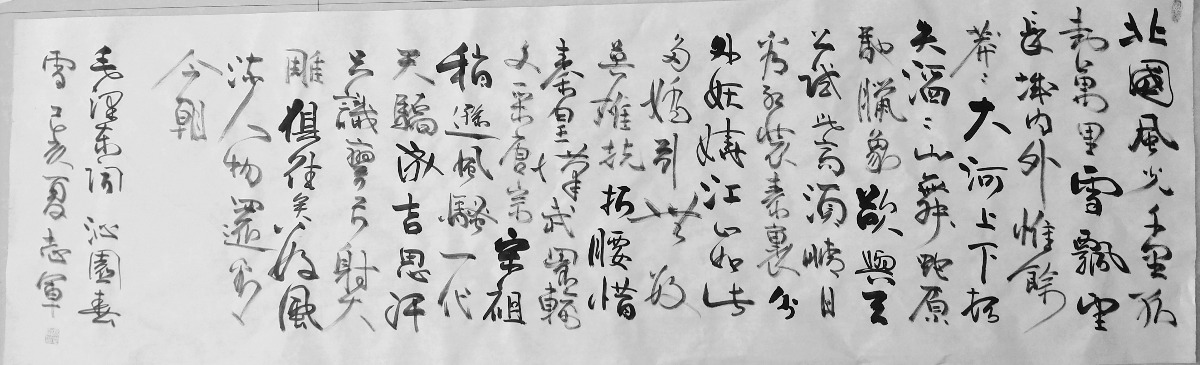 北國風光千里冰
封萬里雪飄望
長城内外惟餘
莽〻大河上下頓
失滔〻山舞蛇原
馳臘象欲與天
公試比高須晴日
看紅裝素裹分
外妖嬈江山如此
多嬌引無數
英雄競折腰惜
秦皇漢武略輸
文采唐宗宋祖
稍遜風騷一代
天驕成吉思汗
只識彎弓射大
雕俱往矣數風
流人物還看
今朝
毛澤東詞 沁園春
雪 己亥夏 志軍